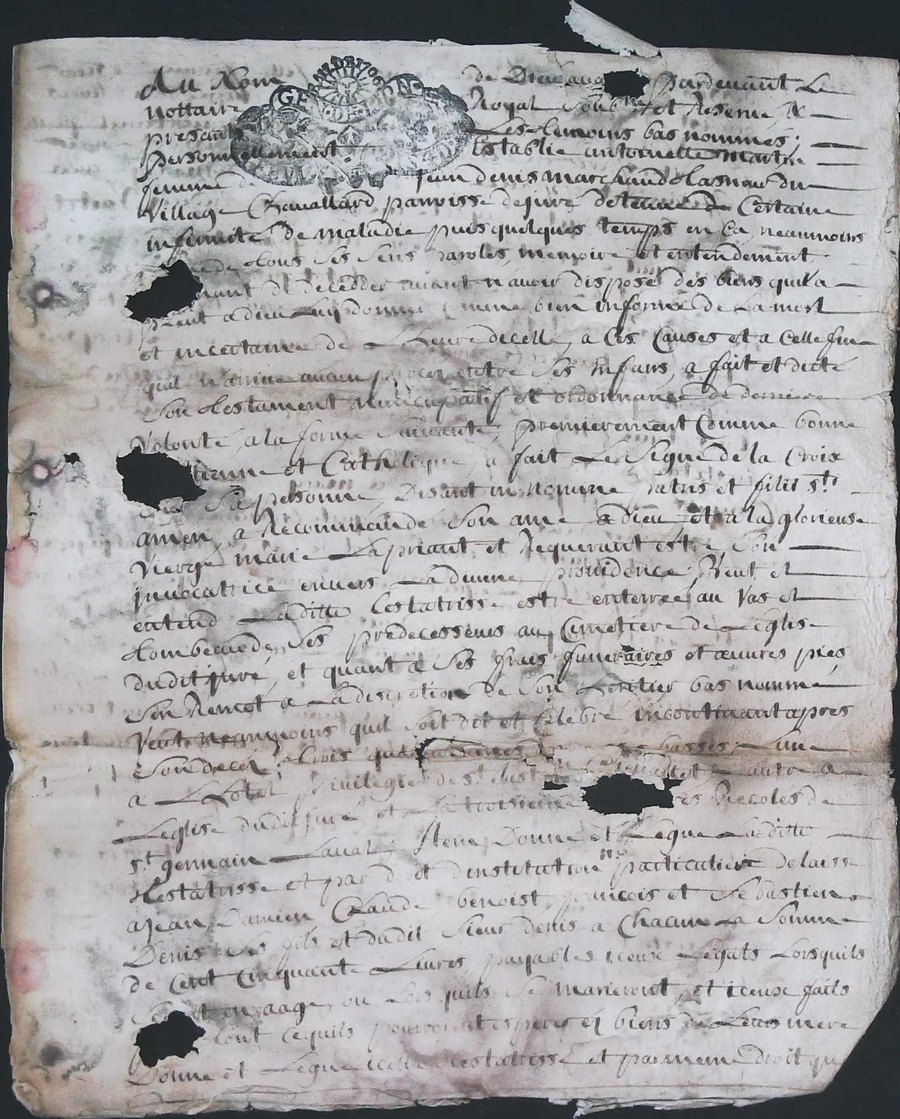 Au Nom de Dieu Pardevant Le
nottaire Royal et Reservé &
presant Les temoins bas nommés
personnellement Establie antoinette martin
femme de Jean denis marchand du
village Chavallard parroisse de juré detenue de Certaine
infirmité de maladie puis quelques temps en Ca, neaumoins
tous ses sens paroles, memoire et entendement
decedder avant n'avoir disposé des biens quil a
pleut a dieu luy donner comme bien informée de La mort
et incertaine de L heure dicelle, a Ces Causes et a Celle fin
quil n'arrive aucun entre ses Enfans, a fait et dicté
Son testament nuncupatif et ordonnance de derniere
volonté, a la forme Suivante, premierement Comme bonne
et Catholique, a fait Le Signe de la Croix
Sa personne Disant in Nomine patris et filii sti
amen, a Recommandé Son ame a dieu et a la glorieuse
Vierge marie La priant et Requerant estre Son
invocatrice envers La divine providence, Veut et
entend Laditte testatrisse estre enterrée au Vas et
tombeau de Ses predecesseurs au Cimetiere de Leglise
dudit juré, et quant a Ses frais funeraires et œuvres pies
Sen Remet a La discretion de Son heritier bas nommé
Veut neaumoins quil soit dit et celebré incontinant apres
Son deces, trois basses Lune
a L hotel privilegie de st Lautre a
Leglise dudit juré et La troisieme de
st germain Laval, Item, Donne et Legue Laditte
testatrisse et par d'institution particuliere delaisse
a Jean, Damien Claude benoist, francois et Sebastien
Denis Ses fils et dudit Sieur denis a Chacun La Somme
de Cent Cinquante Livres, payables iceux Legats Lorsquils
en aage, ou Lorsquils Se marieront, et iceux faits
tout ce quils pourroient esperer es biens de Leur mere
Donne et Legue icelle testatrisse et par meme droit que